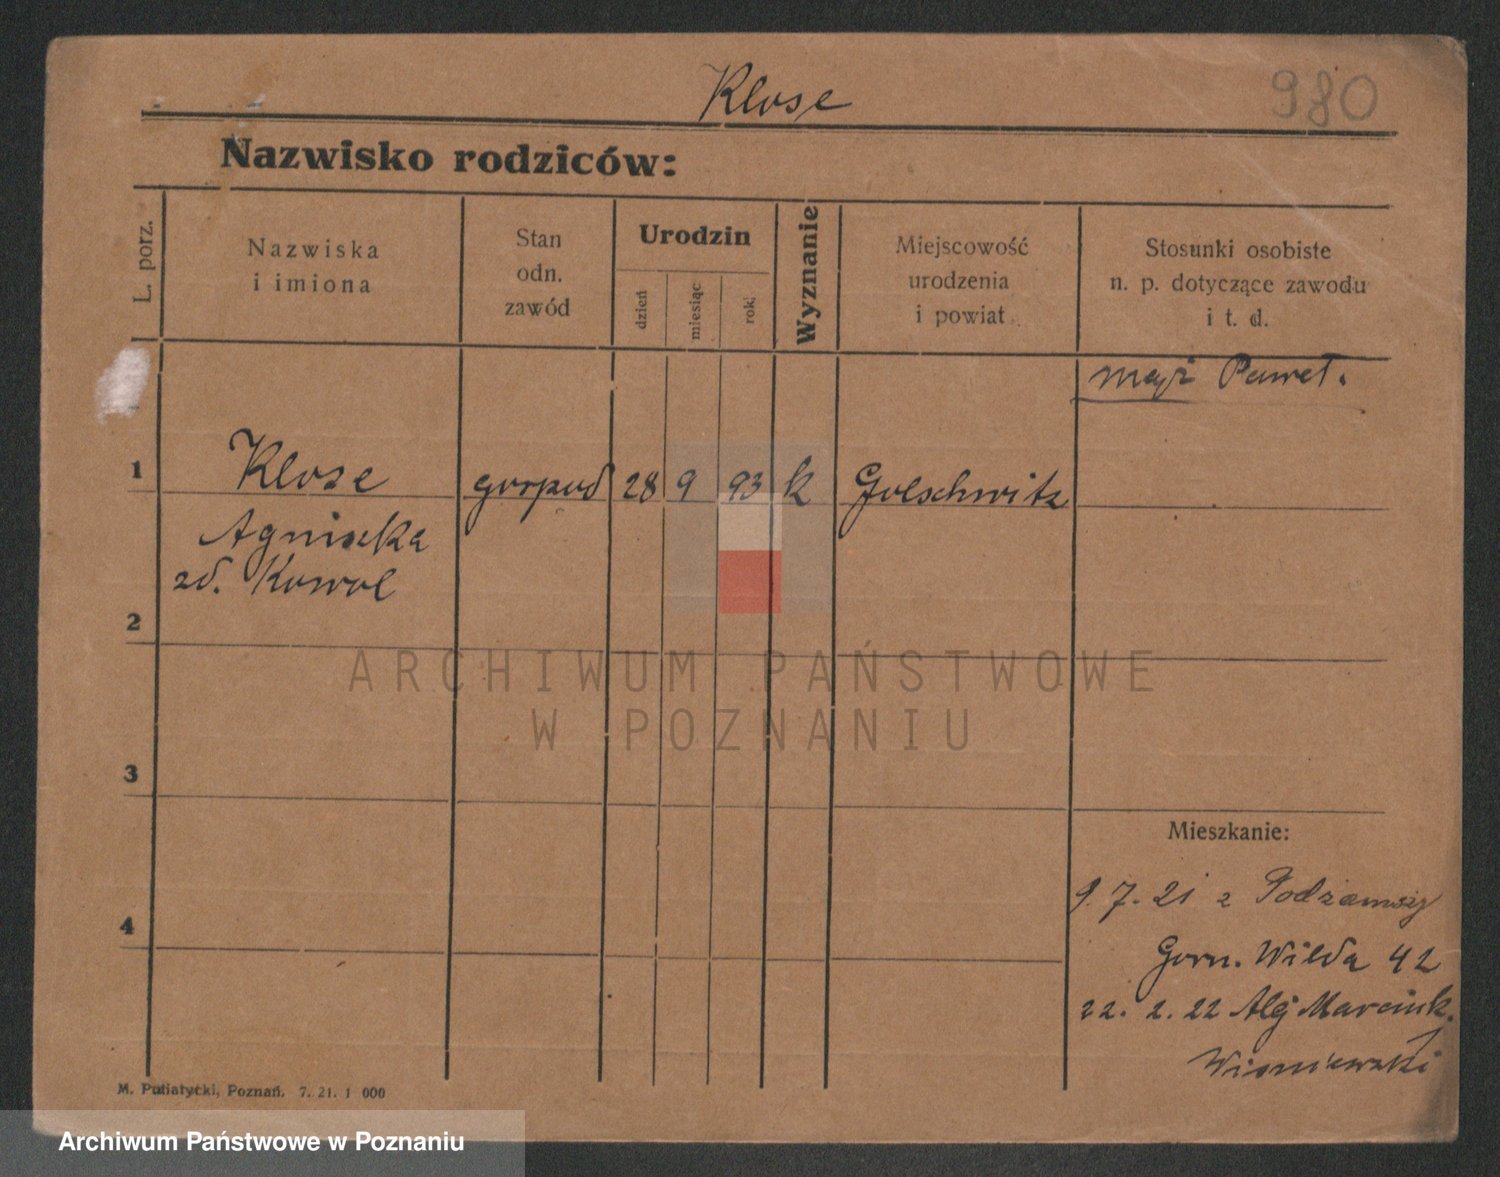 Klose
980
Nazwisko rodziców:
L. porz.
Nazwiska
i imiona
Stan
odn.
zawód
Urodzin
dzień
miesiąc
rok
Wyznanie
Miejscowość
urodzenia
i powiat
Stosunki osobiste
n. p. dotyczące zawodu
i t. d.
mąż Paweł.
1
Klose
gospod
28
9
93
k
Golschwitz
Agnieszka
zd. Kowol
2
ARCHIWUM PAŃSTWOWE
W POZNANIU
3
Mieszkanie:
9. 7. 21 z
4
Gorn. Wilda 42
22. 2. 22 Alej Marcink.
Wiśniewski
M. Putiatycki, Poznań. 7. 21. 1 000
Archiwum Państwowe w Poznaniu